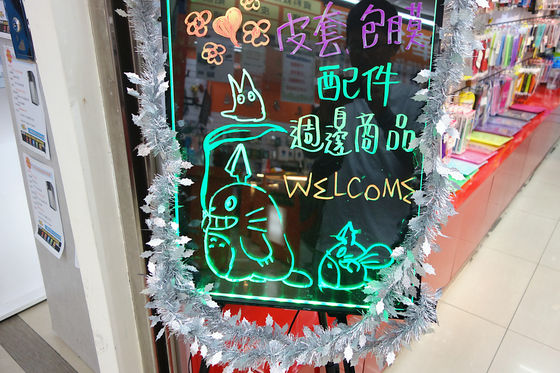 皮套 包膜
配件
週邊商品
WELCOME